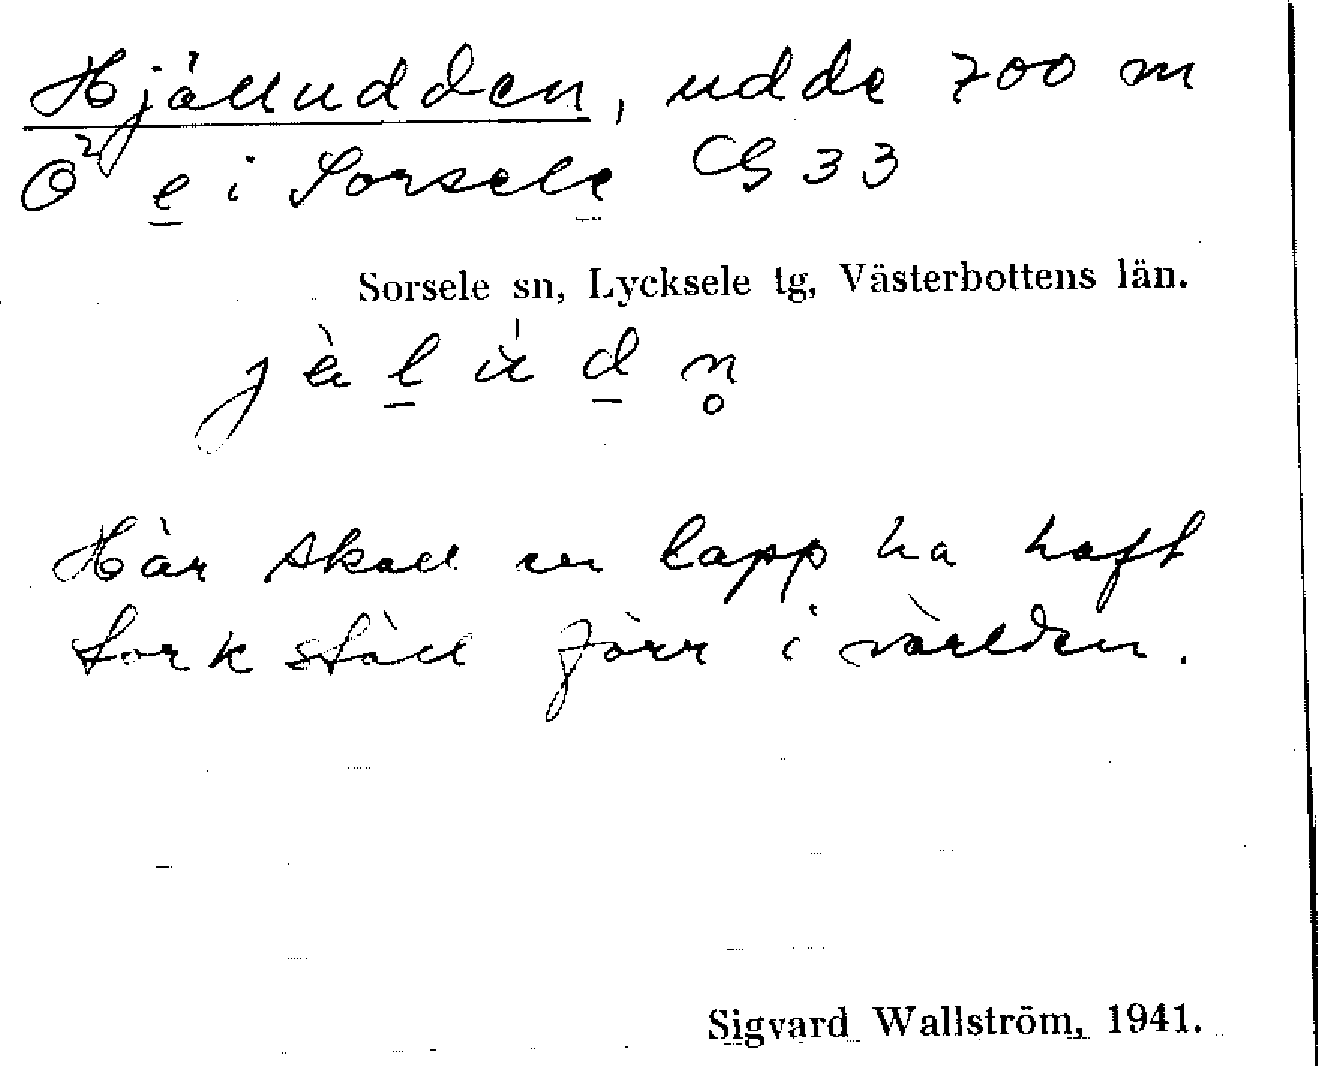 Hjälludden, udde 700 m
Ö² e i Sorsele CG 33
Sorsele sn, Lycksele tg, Västerbottens län.
jä̀lúdn̥
Här skall en lapp ha haft
torkställ förr i världen.
Sigvard Wallström, 1941.